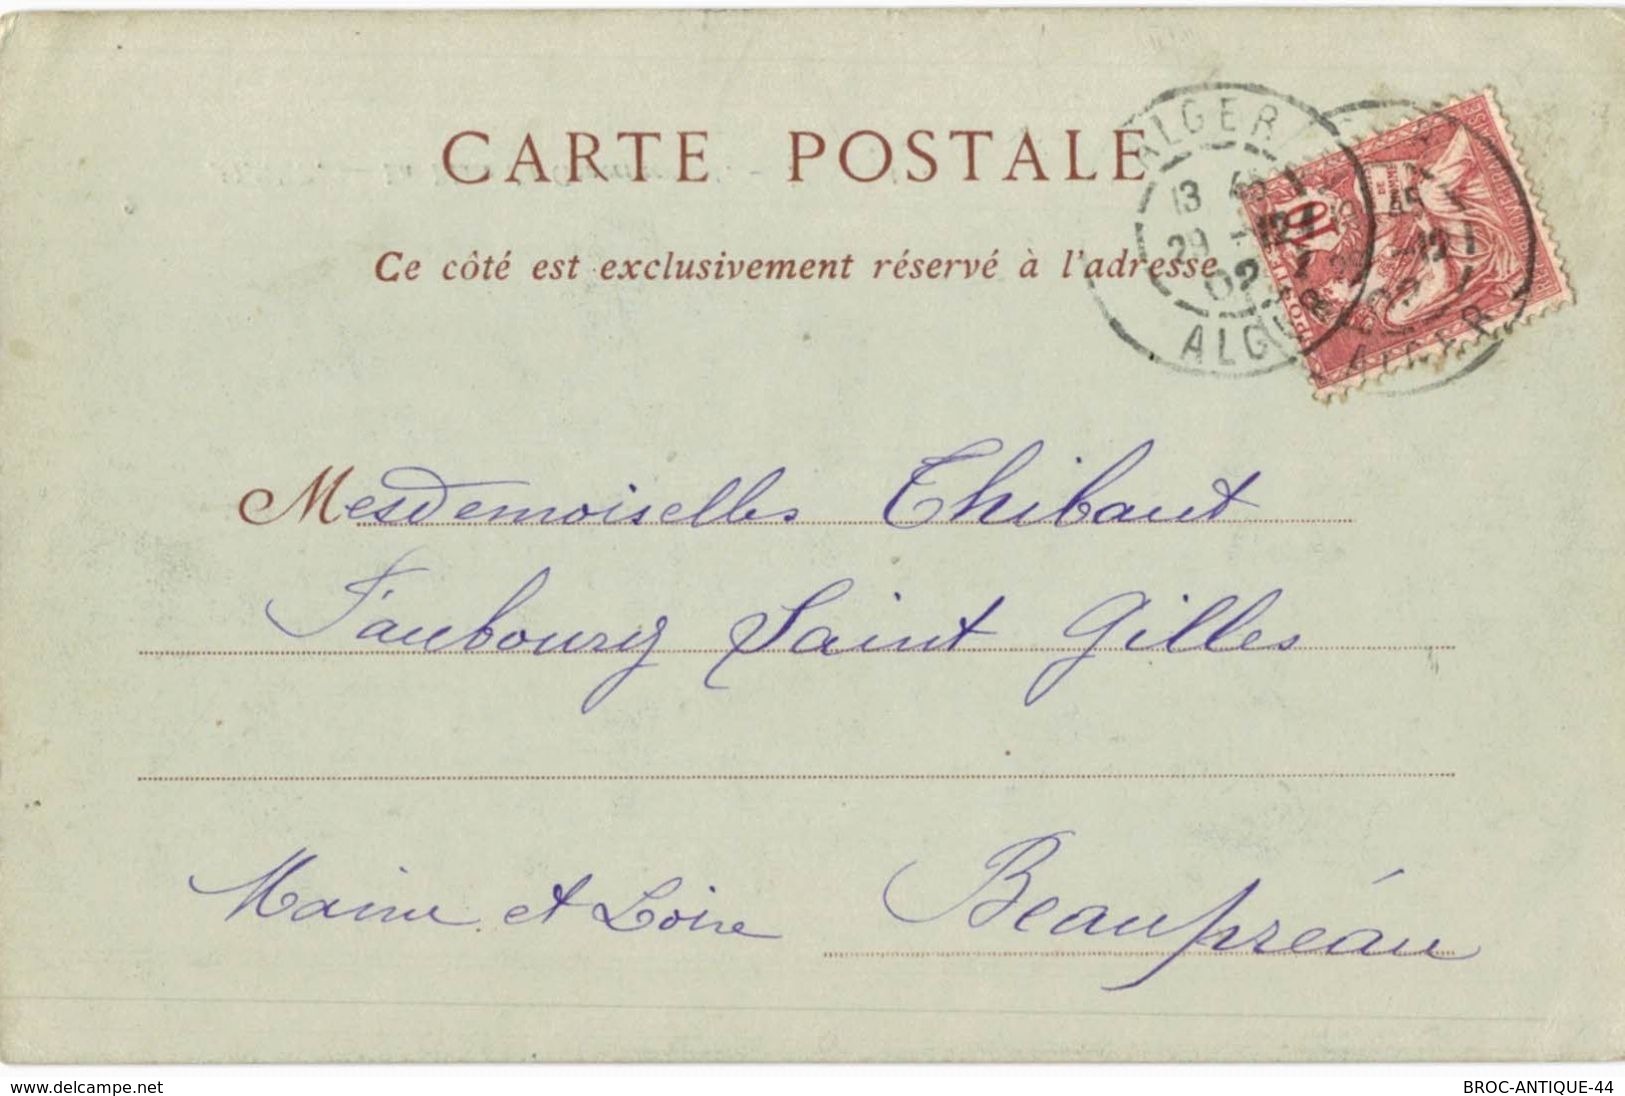 CARTE POSTALE
Ce côté est exclusivement réservé à l'adresse
ALGER
13 45
29 -12
02
ALGER
10
POSTES
45
-12
ALGER
Mesdemoiselles Thibaut
Faubourg Saint Gilles
Maine et Loire Beaupréau
www.delcampe.net
BROC-ANTIQUE-44